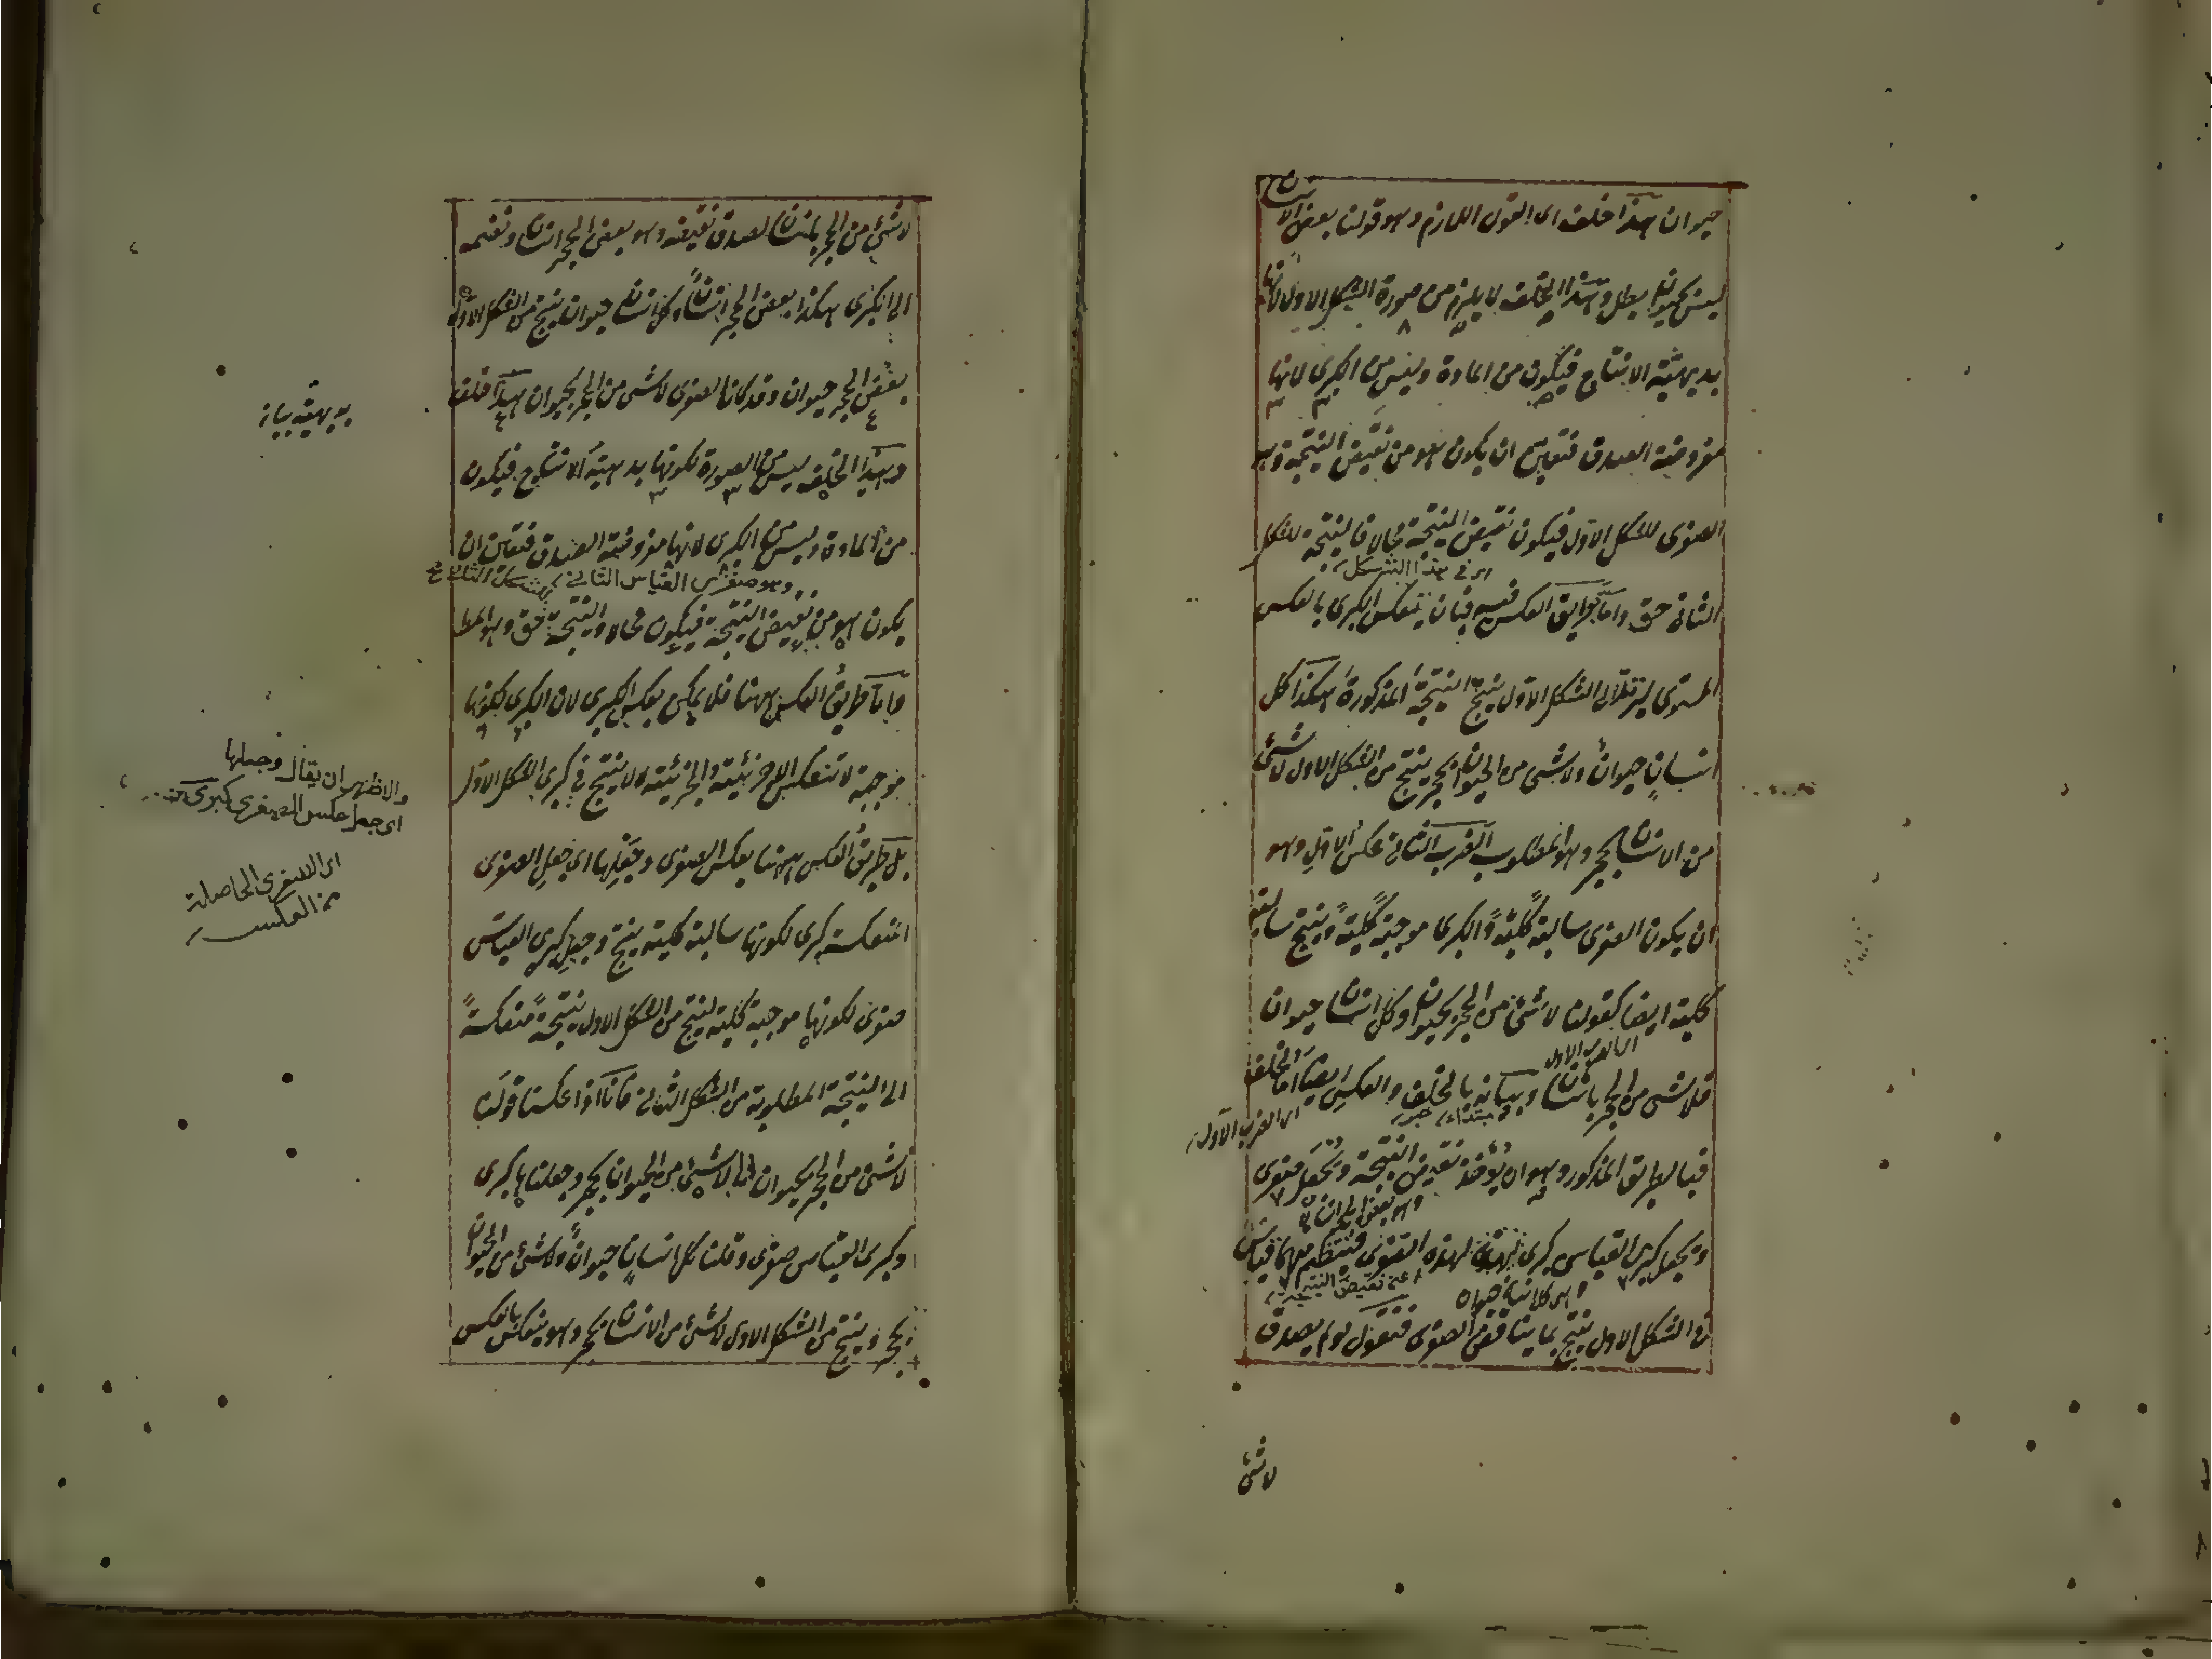 حيوان هذا خلف اى القول اللازم وهو قولنا بعض الانسان
ليس بحيوان بطل وهذا الخلف لا يلزم من صورة الشكل الاول لانها
بديهية الانتاج فيكون من المادة وليس من الكبرى لانها
مفروضة الصدق فتعين ان يكون هو من نقيض النتيجة وهو
الصغرى للشكل الاول فيكون نقيض النتيجة محالا فالنتيجة للشكل
اى فى هذا الشكل
الثانى حق واما طريق العكس فيه فبان ينعكس الكبرى بالعكس
المستوى ليرتد الى الشكل الاول ينتج النتيجة المذكورة هكذا كل
انسان حيوان ولا شئ من الحيوان بحجر ينتج من الشكل الاول لا شئ
من الانسان بحجر وهو المطلوب الضرب الثانى عكس الاول وهو
ان يكون الصغرى سالبة كلية والكبرى موجبة كلية وينتج سالبة
كلية ايضا كقولنا لا شئ من الحجر بحيوان وكل انسان حيوان
اى الضرب الاول
فلا شئ من الحجر بانسان وبيانه بالخلف والعكس ايضا اما الخلف
مبتداء خبر
اى الضرب الاول
فبالطريق المذكور وهو ان يؤخذ نقيض النتيجة ويجعل صغرى
وهو بعض الحجر انسان
ويجعل كبرى القياس كبرى لهذه الصغرى فينتظم منهما قياس
اعنى نقيض النتيجة
اى كل انسان حيوان
فى الشكل الاول ينتج بما يناقض الصغرى فنقول لو لم يصدق
لا شئ
لا شئ من الحجر بانسان لصدق نقيضه وهو بعض الحجر انسان ونضمه
الى الكبرى هكذا بعض الحجر انسان وكل انسان حيوان ينتج من الشكل الاول
بعض الحجر حيوان وقد كان الصغرى لا شئ من الحجر بحيوان هذا خلف
وهذا الخلف ليس من الصورة لكونها بديهية الانتاج فيكون
من المادة وليس من الكبرى لانها مفروضة الصدق فتعين ان
وهو صغرى القياس الثانى للشكل الثانى
يكون هو من نقيض النتيجة فيكون محالا والنتيجة حق وهو المط
واما طريق العكس ههنا فلا يمكن بعكس الكبرى لان الكبرى لكونها
موجبة لا تنعكس الا جزئية والجزئية لا ينتج فى كبرى الشكل الاول
بل طريق العكس ههنا بعكس الصغرى وجعلها اى جعل الصغرى
المنعكسة كبرى لكونها سالبة كلية ينتج وجعل كبرى القياس
صغرى لكونها موجبة كلية لينتج من الشكل الاول نتيجة منعكسة
الى النتيجة المطلوبة من الشكل الثانى فانا اذا عكسنا قولنا
لا شئ من الحجر بحيوان الى لا شئ من الحيوان بحجر وجعلناها كبرى
وكبرى القياس صغرى وقلنا كل انسان حيوان ولا شئ من الحيوان
بحجر وينتج من الشكل الاول لا شئ من الانسان بحجر وهو ينعكس بالعكس
بديهية بيانه
والاظهر ان يقال وجعلها
اى جعل عكس الصغرى كبرى
اى الصغرى الحاصلة
من العكس